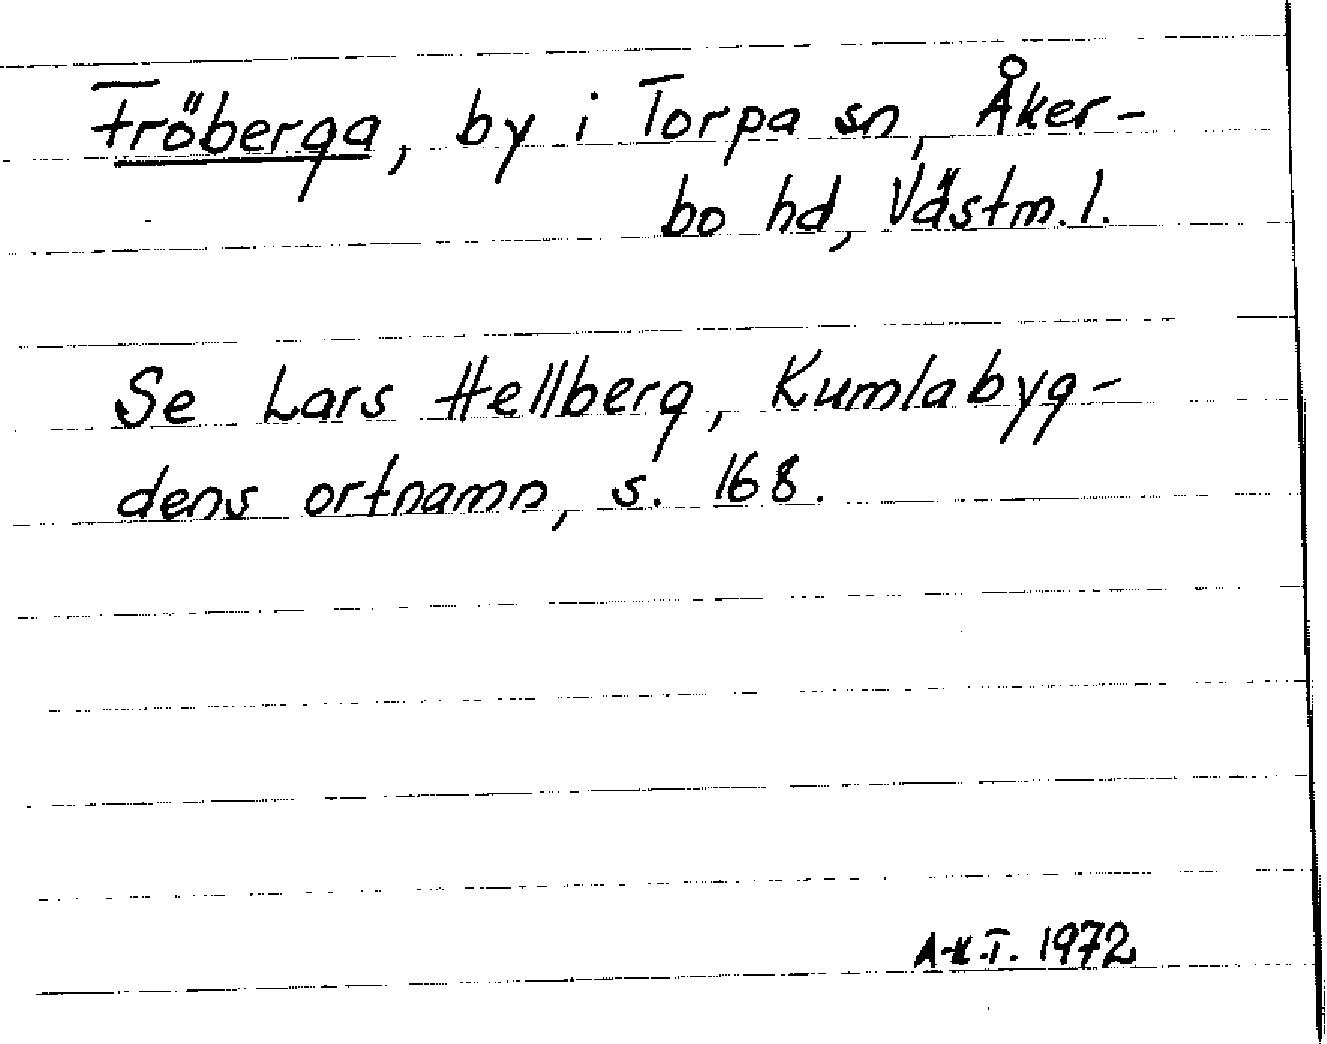 Fröberga, by i Torpa sn, Åker-
bo hd, Västm. l.
Se Lars Hellberg, Kumlabyg-
dens ortnamn, s. 168.
A-K.T. 1972